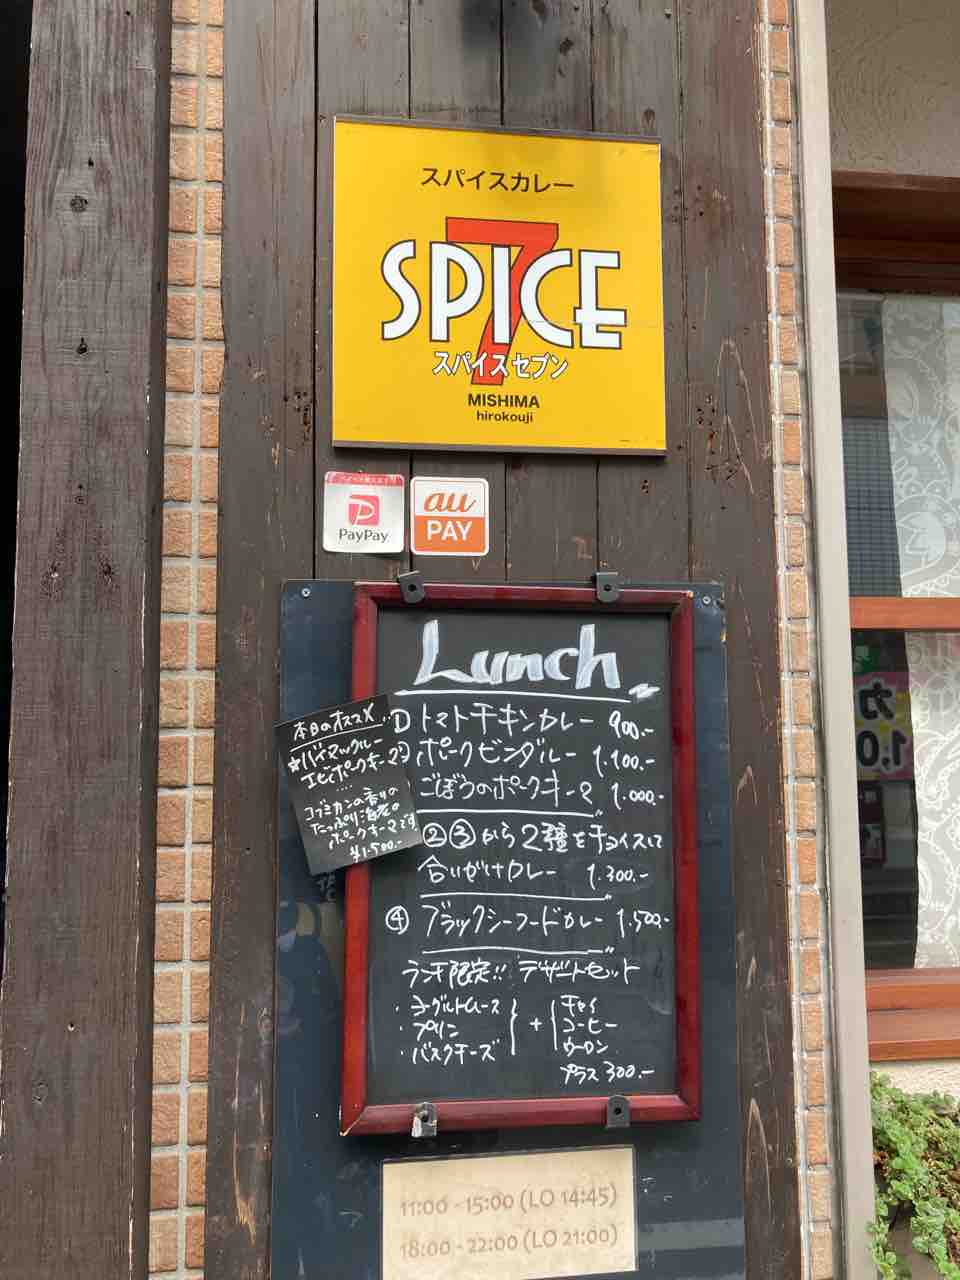 スパイスカレー
7
SPICE
スパイスセブン
MISHIMA
hirokouji
PayPay
au
PAY
Lunch
① トマトチキンカレー 900.-
ポークビンダルー 1.100.-
ごぼうのポークキーマ 1.000.-
②③から2種をチョイスして
合いがけカレー 1.300.-
④ ブラックシーフードカレー 1.500.-
ランチ限定!! デザートセット
・ヨーグルトムース
・プリン
・バスクチーズ
+
チャイ
コーヒー
ウーロン
プラス300.-
本日のオススメ
☆バイマックルー
エビポークキーマ
コブミカンの香りの
たっぷり海老の
ポークキーマです
¥1.500-
11:00 - 15:00 (LO 14:45)
18:00 - 22:00 (LO 21:00)